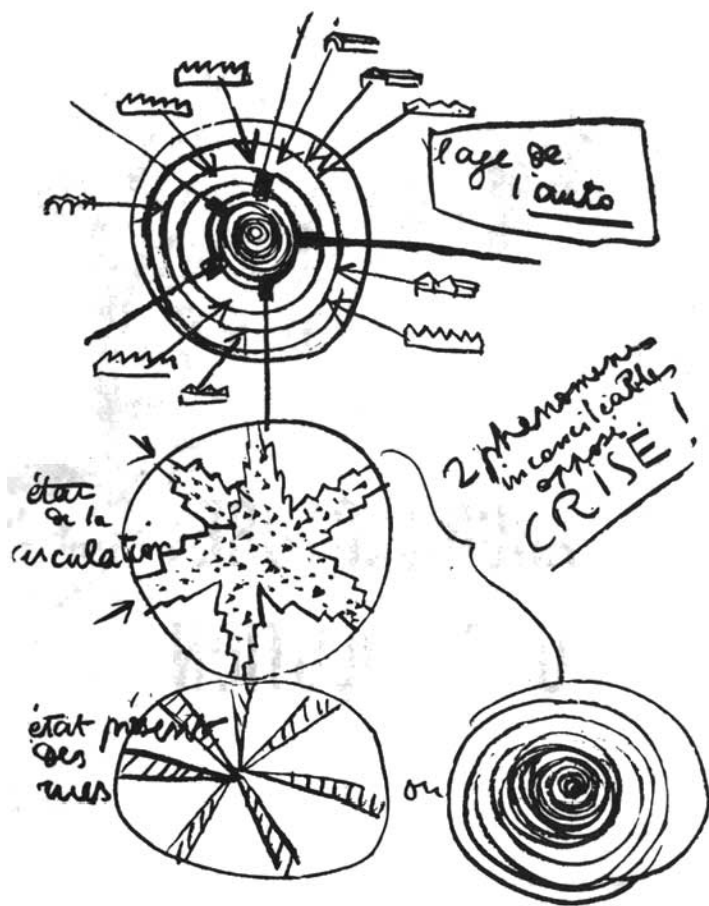 l'age de
l'auto
2 phenomenes
inconciliables
opposé.
CRISE !
état
de la
circulation
état présent
des
rues
ou